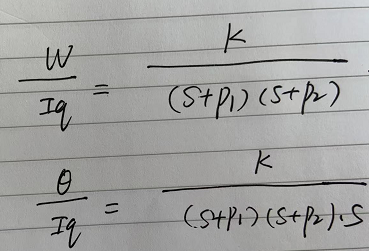 W/Iq = K/((S+P1)(S+P2))
θ/Iq = K/((S+P1)(S+P2).S)